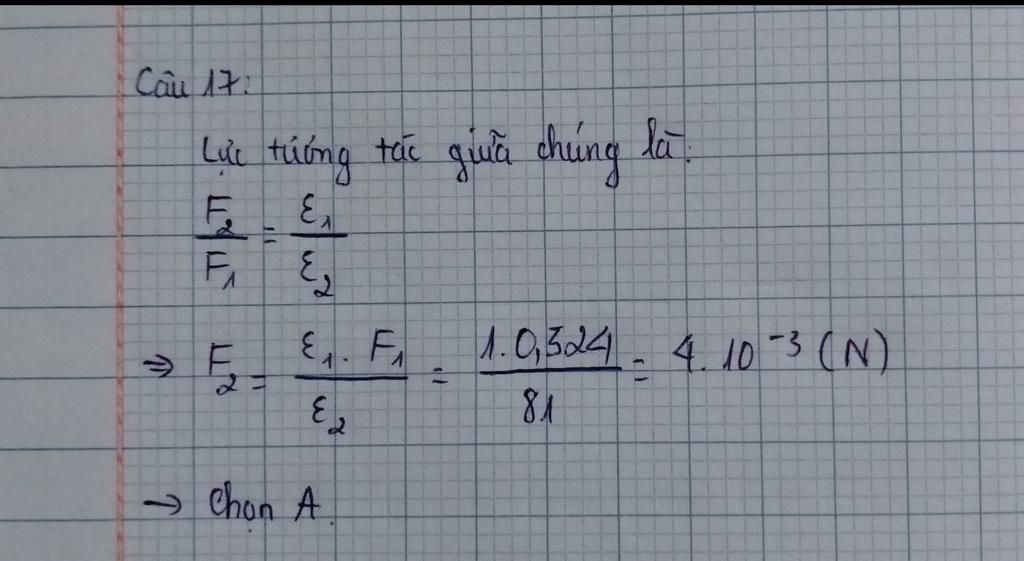 Câu 17:
Lực tương tác giữa chúng là:
F₂/F₁ = ε₁/ε₂
⇒ F₂ = (ε₁ . F₁)/ε₂ = (1.0,324)/81 = 4.10⁻³ (N)
→ Chọn A.